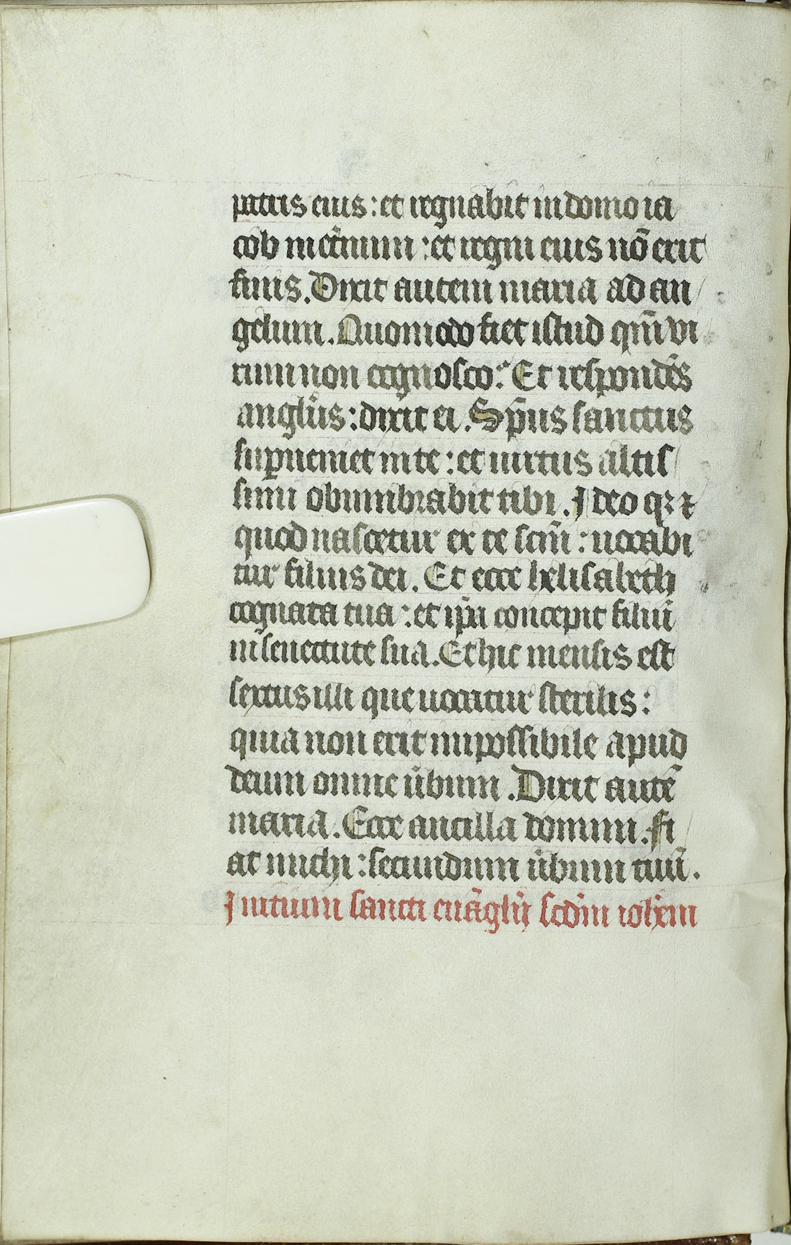 patris eius : et regnabit in domo ia
cob in et̄num : et regni eius nō erit
finis. Dixit autem maria ad an
gelum. Quomodo fiet istud qm̄ vi
rum non cognosco : Et respondēs
angl̄us : dixit ei . Sp̄us sanctus
sup̄ueniet in te : et uirtus altis
simi obumbrabit tibi . Ideo qꝫ ⁊
quod nascetur ex te scm̄ : uocabi
tur filius dei . Et ecce helisabeth
cognata tua : et ip̄a concepit filiū
in senectute sua . Et hic mensis est
sextus illi que uocatur sterilis :
quia non erit impossibile apud
deum omne ūbum . Dixit autē
maria . Ecce ancilla domini . Fi
at michi : secundum ūbum tuū .
Initium sancti euāglij scdm̄ ioh̄em